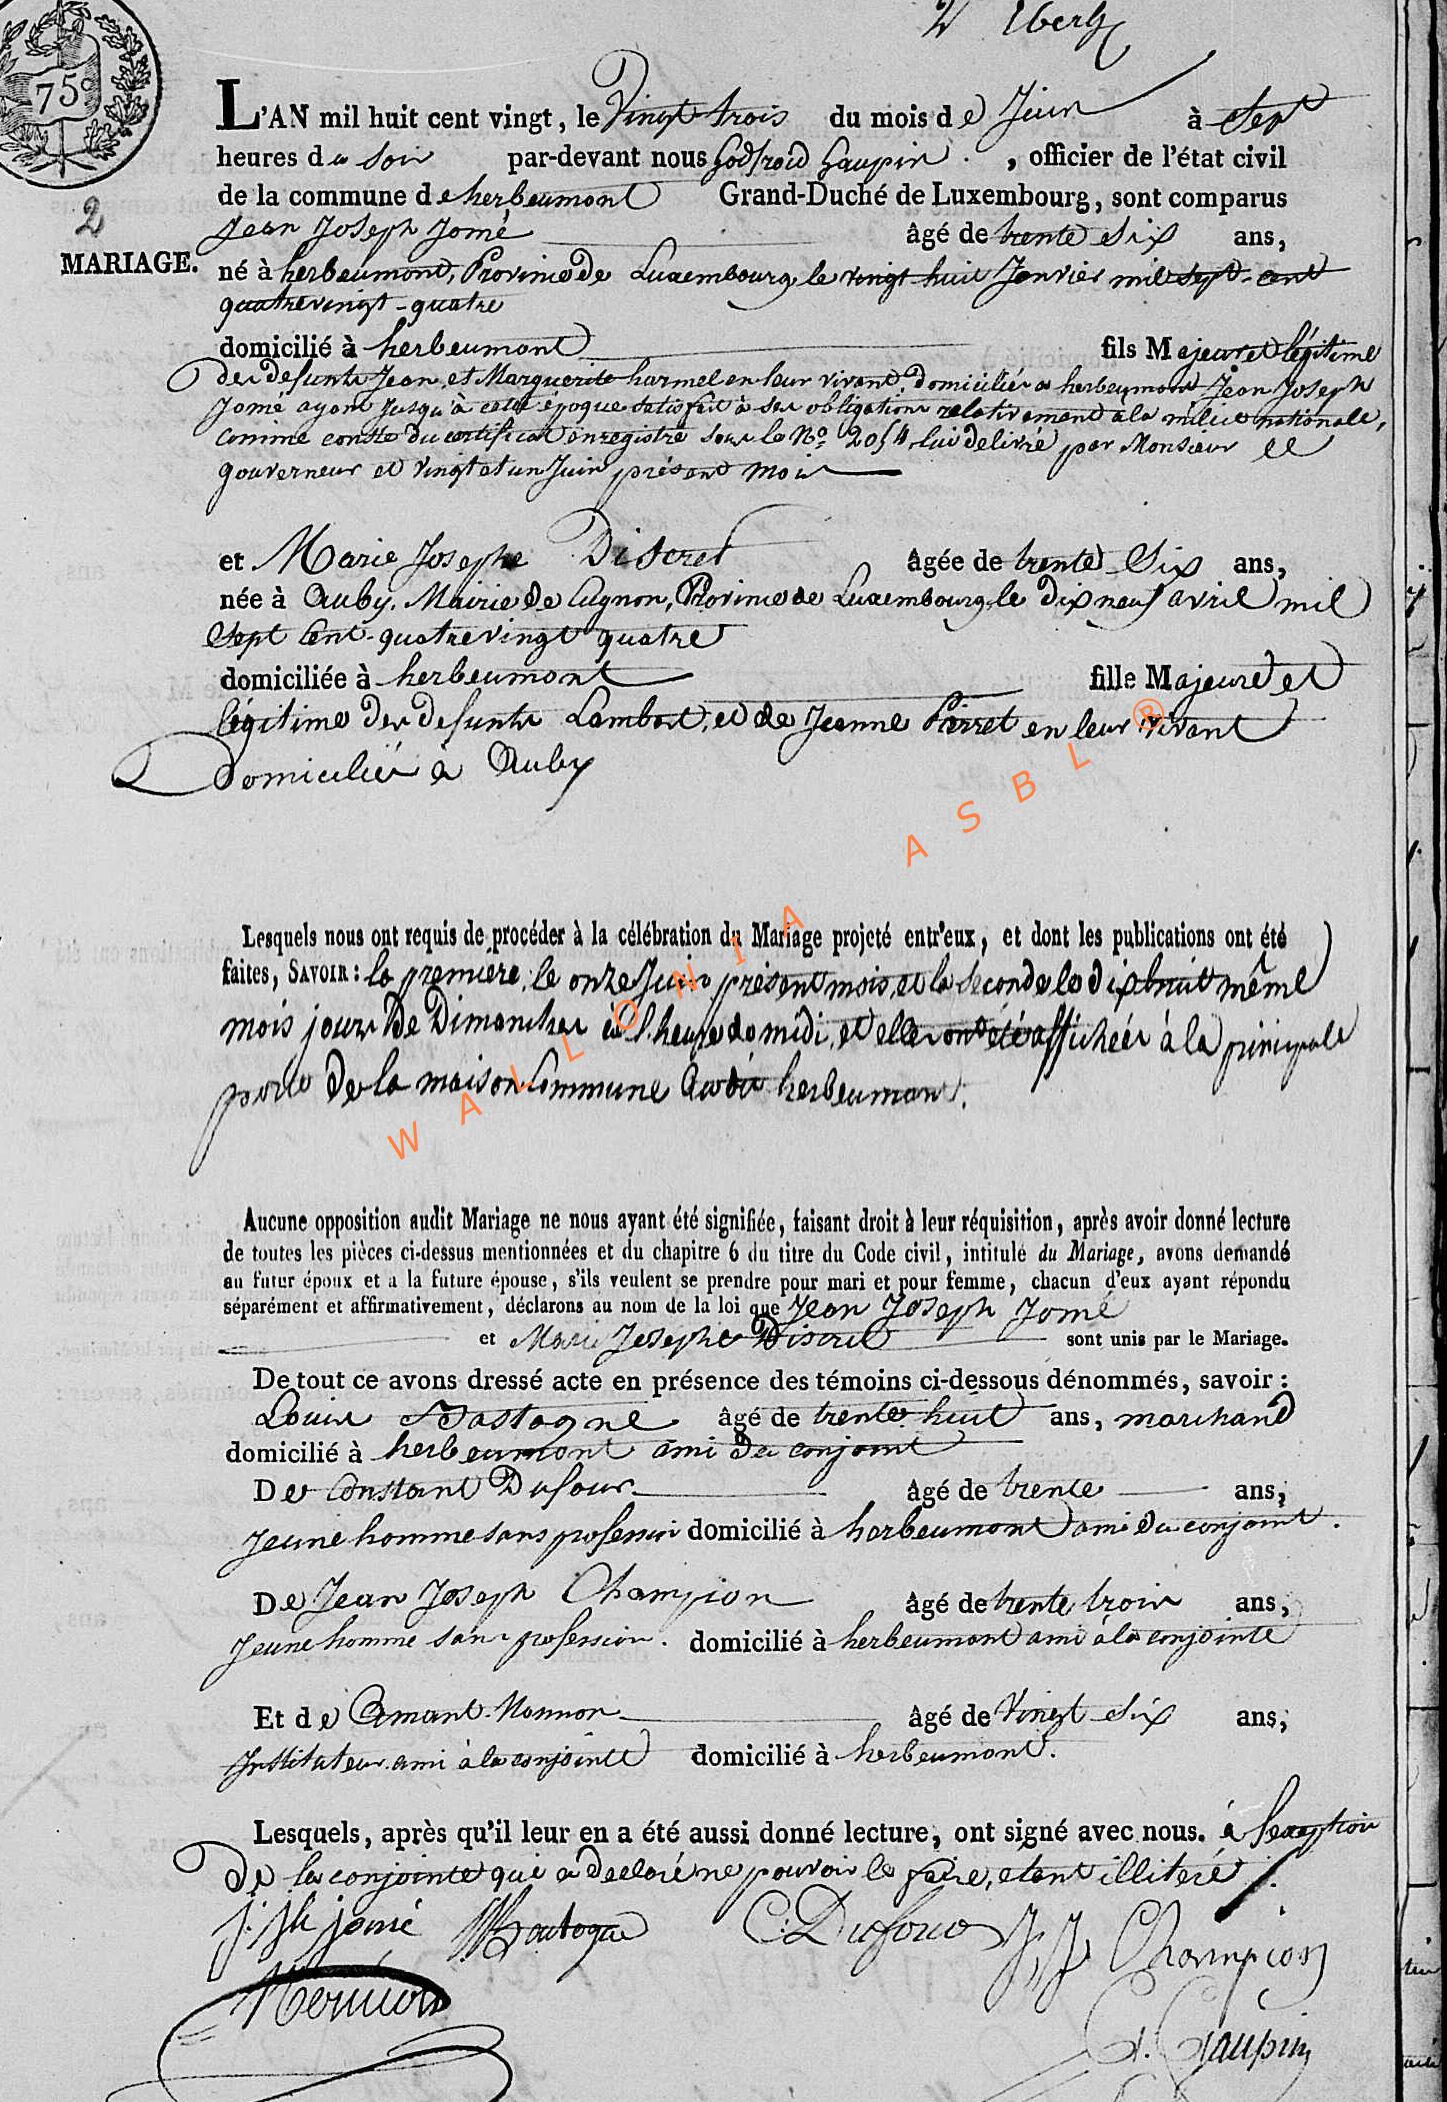 2 Eberly
75c
L'AN mil huit cent vingt, le Vingt trois du mois de Juin à Sept
heures du soir par-devant nous Godfroid Gaupin, officier de l'état civil
de la commune de herbeumont Grand-Duché de Luxembourg, sont comparus
2
Jean Joseph Jomé âgé de trente Six ans,
MARIAGE.
né à herbeumont, Province de Luxembourg le vingt-huit Janvier mil sept-cent
quatrevingt-quatre
domicilié à herbeumont fils Majeur et légitime
des defunts Jean, et Marguerite harmel en leur vivant, domiciliés a herbeumont Jean Joseph
Jomé ayant jusqu'à cette époque satisfait à ses obligations relativement à la milice nationale,
comme conste du certificat enregistré sous le No 2054 lui delivré par Monsieur le
gouverneur et vingt et un Juin présent mois
et Marie Josephe Discret âgée de trente Six ans,
née à Auby, Mairie de Cugnon, Province de Luxembourg, le dix neuf avril mil
Sept Cent-quatrevingt quatre
domiciliée à herbeumont fille Majeure et
légitime des defunts Lambert, et de Jeanne Pierret en leur vivant
Domicilié à Auby
Lesquels nous ont requis de procéder à la célébration du Mariage projeté entr'eux, et dont les publications ont été
faites, SAVOIR : la première, le onze Juin présent mois, et la Seconde le dixhuit même
mois jours de Dimanches à l'heure de midi, et elles ont été affichées à la principale
porte de la maison Commune dudit herbeumont.
WALLONIA ASBL ®
Aucune opposition audit Mariage ne nous ayant été signifiée, faisant droit à leur réquisition, après avoir donné lecture
de toutes les pièces ci-dessus mentionnées et du chapitre 6 du titre du Code civil, intitulé du Mariage, avons demandé
au futur époux et a la future épouse, s'ils veulent se prendre pour mari et pour femme, chacun d'eux ayant répondu
séparément et affirmativement, déclarons au nom de la loi que Jean Joseph Jomé
et Marie Josephe Discret sont unis par le Mariage.
De tout ce avons dressé acte en présence des témoins ci-dessous dénommés, savoir :
Louis Bastogne âgé de trente huit ans, marchand
domicilié à herbeumont ami du conjoint
De Constant Dufour âgé de trente ans,
Jeune homme sans profession domicilié à herbeumont ami du conjoint.
De Jean Joseph Champion âgé de trente trois ans,
Jeune homme sans profession. domicilié à herbeumont ami à la conjointe
Et de Amant Nonnon âgé de Vingt-Six ans,
Instituteur ami à la conjointe domicilié à herbeumont.
Lesquels, après qu'il leur en a été aussi donné lecture, ont signé avec nous. à lexeption
De la conjointe qui a declaré ne pouvoir le faire, etant illiteré.
j: jh jomé Bastogne C: Dufour J, J, Champion
G. Gaupin